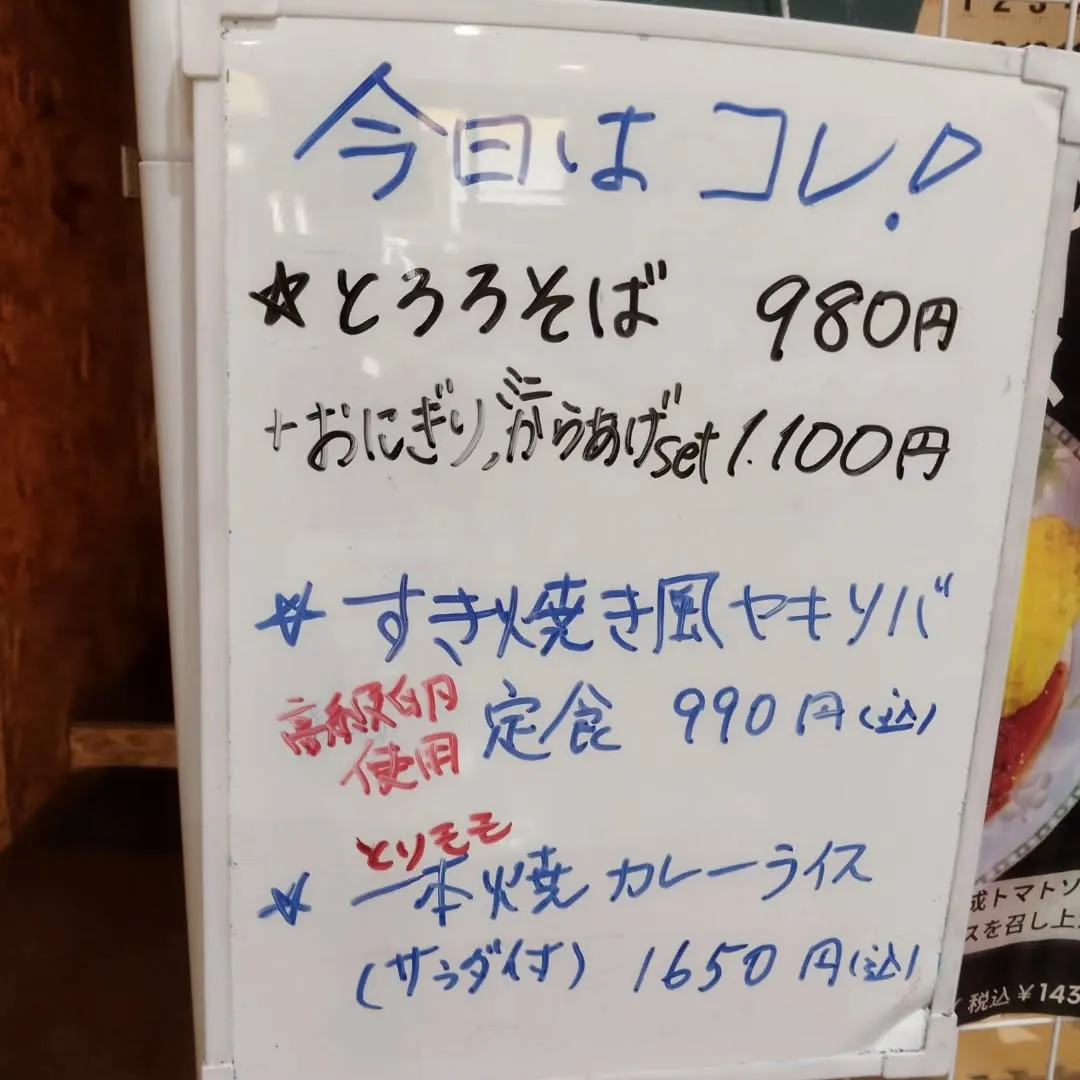 今日はコレ!
☆とろろそば 980円
+おにぎり,ミニからあげset 1.100円
☆すき焼き風ヤキソバ
高級卵使用 定食 990円(込)
とりモモ
☆一本焼カレーライス
(サラダ付) 1650円(込)
成トマトソ
スを召し上
税込¥143
1 2 3